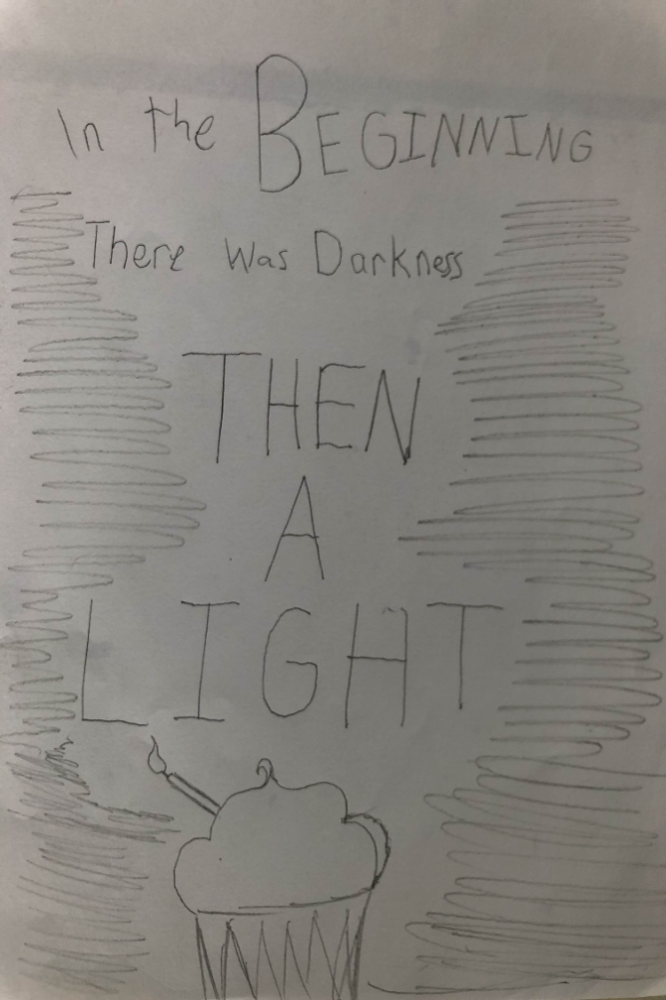 In the BEGINNING
There Was Darkness
THEN
A
LIGHT